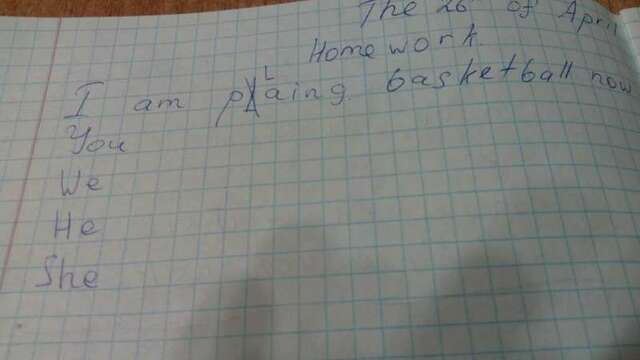 The 26 of April
Homework.
I am plaing basketball now
You
We
He
She